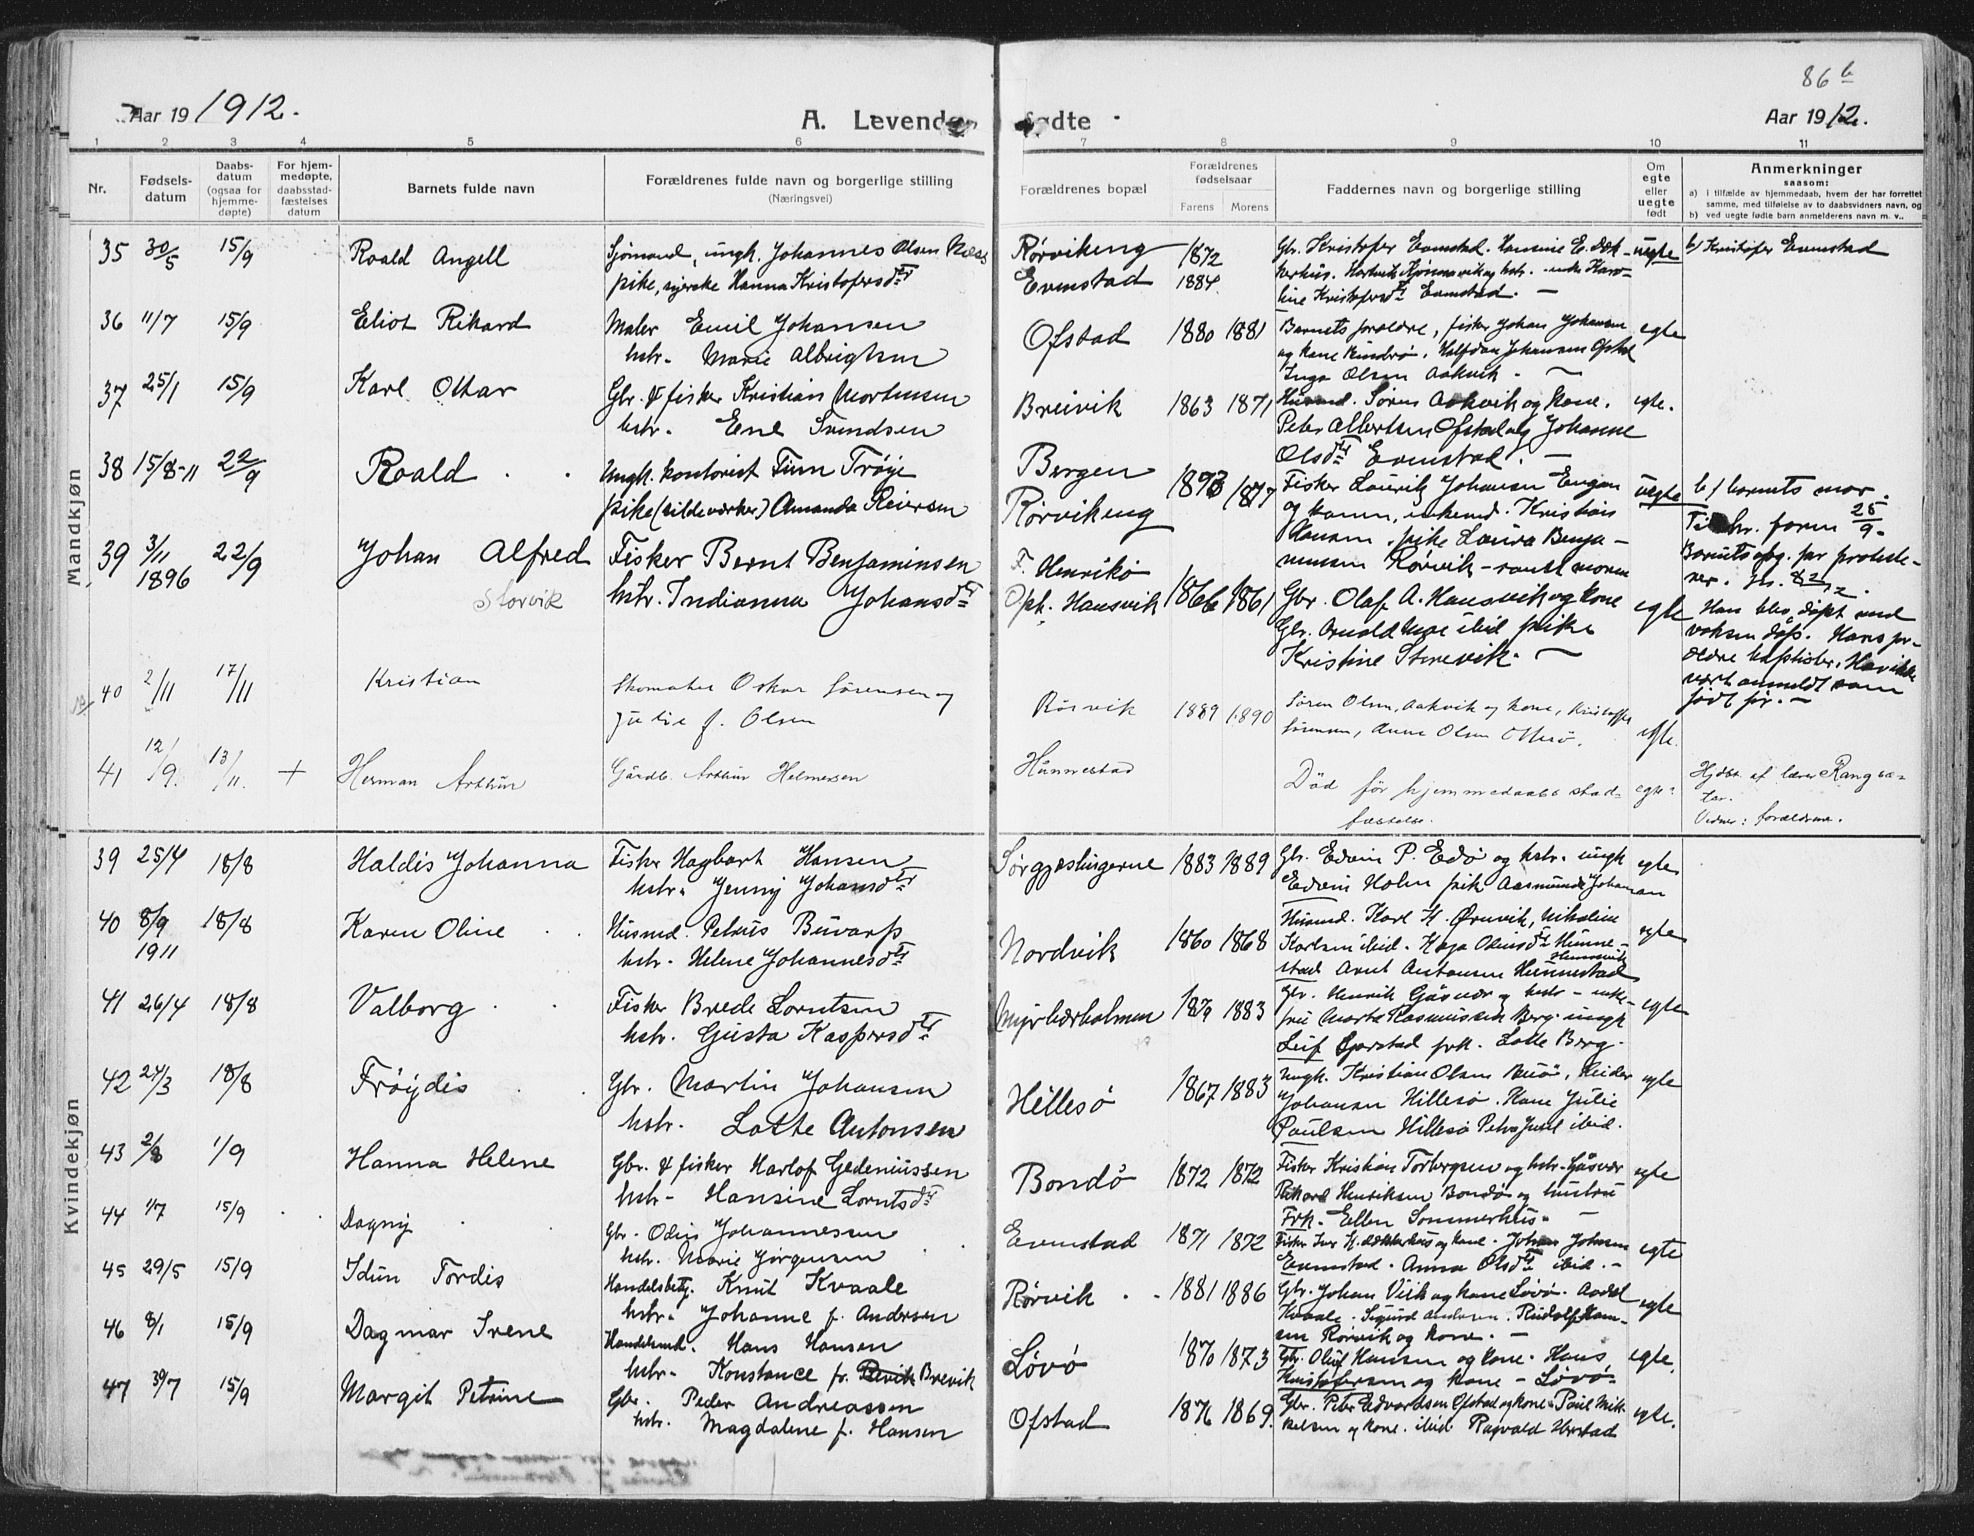 86 b
Aar 19 1912.
A. Levende fødte
Aar 1912.
1 2 3 4 5 6 7 8 9 10 11
Nr.
Fødsels-
datum
Daabs-
datum
(ogsaa for
hjemme-
døpte)
For hjem-
medøpte,
daabsstad-
fæstelses
datum
Barnets fulde navn
Forældrenes fulde navn og borgerlige stilling
(Næringsvei)
Forældrenes bopæl
Forældrenes
fødselsaar
Farens Morens
Faddernes navn og borgerlige stilling
Om
egte
eller
uegte
født
Anmerkninger
saasom:
a) i tilfælde av hjemmedaab, hvem der har forrettet
samme, med tilføielse av to daabsvidners navn, og
b) ved uegte fødte barn anmelderens navn m. v..
Mandkjøn
35 30/5 15/9 Roald Angell
Sjømand, ungk. Johannes Olsen Næss
pike, syerske Hanna Kristofersdtr
Rørvikeng 1872
Evenstad 1884
Gbr. Kristofer Evenstad. Hansine E. Dek-
kerhus.
line Kristofersdtr Evenstad. —
uegte
b/ Kristofer Evenstad
36 11/7 15/9 Eliot Rikard
Maler Emil Johansen
hstr. Marie Albrigtsen
Ofstad 1880 1881
Barnets foreldre, fisker Johan Johansen
og kone. Halfdan Johansen Ofstad
Inga Olsen Aakvik. —
egte
37 25/1 15/9 Karl Ottar
Gbr. & fisker Kristian Mortensen
hstr. Ene Svendsen
Breivik 1863 1871
Husmd. Søren Aakvik og kone.
Peter Albertsen Ofstad og Johanne
Olsdtr Evenstad. —
egte.
38 15/8-11 22/9 Roald
Ungk. kontorist Finn Trøye
pike (sildevirker) Amanda Reiersen
Bergen
Rørvikeng
1893 1877
Fisker Lauritz Johansen Engan
og konen, enkemd. Kristian
Hansen, pike Laura Benja-
minsen Rørvik - samt moren
uegte
b/ barnets mor.
Tilhr. form 25/9.
39 3/11 1896 22/9 Johan Alfred
Storvik
Fisker Bernt Benjaminsen
hstr. Indianna Johansdtr
F. Henrikø
Oph. Hansvik 1866 1861
Gbr. Olaf A. Hansvik og kone
Gbr. Arnold Moe ibid pike
Kristine Storevik. —
egte
Han blev døpt ved
voksen dåp. Hans for-
ældre baptister. Har ikke
vært anmeldt som
født før. —
40 2/11 17/11 Kristian
Skomaker Oskar Sørensen og
Julie f. Olsen
Rørvik 1889 1890
Søren Olsen, Aakvik og kone, Kristoffer
Sørensen, Anna Olsen Otterø.
egte.
41 12/9. 13/11. + Herman Arthur
Gårdb. Arthur Helmersen
Hunnestad
Død før hjemmedaabs stad-
fæstelse.
egte
Hjdbt. af lærer Rangsæ-
ter.
Vidner: forældrene.
Kvindekjøn
39 25/4 18/8 Haldis Johanna
Fisker Hagbart Hansen
hstr. Jenny Johansdtr
Sørgjæslingerne 1883 1889
Gbr. Edvin P. Edø og hstr. ungk
Edvin Holm pik Aasmunda Johansen
egte
40 8/9 1911 18/8 Karen Oline
Husmd. Petrus Buvarp
hstr. Helene Johannesdtr
Nordvik 1860 1868
Husmd. Karl H. Ørnvik, Nikoline
Karlsen ibid. Kaja Olausdtr Hunne-
stad Arnt Antonsen Hunnestad
egte
41 26/4 18/8 Valborg
Fisker Brede Lorntsen
hstr. Gusta Kaspersdtr
Myrbærholmen 1879 1883
Gbr. Henrik Gåsvær og hstr - enke-
fru Marta Rasmussen Berg. ungk
Leif Gjerstad frk. Lotte Berg.
egte
42 24/3 18/8 Frøydis
Gbr. Martin Johansen
hstr. Lotte Antonsen
Hillesø 1867 1883
Ungk. Kristian Olsen Buø, Peider
Johansen Hillesø. Kone Julie
Paulsen Hillesø Petra Juul ibid.
egte
43 2/8 1/9 Hanna Helene
Gbr. & fisker Harlof Gedeniussen
hstr - Hansine Lorntsdtr
Bondø 1872 1872
Fisker Kristian Torbergsen og hstr - Gåsvær
Rikard Henriksen Bondø og hustru
Frk. Ellen Sommerhus. —
egte
44 1/7 15/9 Dagny
Gbr. Odin Johannessen
hstr. Marie Jørgensen
Evenstad 1871 1872
Fisker Iver H. Dekkerhus og kone. Johan Johnsen
Evenstad. Anna Olsdtr ibid. —
egte
45 29/5 15/9 Idun Tordis
Handelsbetj. Knut Kvaale
hstr. Johanne f. Andersen
Rørvik 1881 1886
Gbr. Johan Viik og kone Løvø. Aadel
Kvaale. Sigurd Andersen. Rudolf Han-
sen Rørvik og kone. —
egte
46 8/1 15/9 Dagmar Irene
Handelsmd. Hans Hansen
hstr. Konstance f. Brevik
Løvø 1870 1873
Gbr. Oluf Hansen og kone. Hans
Kristofersen og kone - Løvø.
egte.
47 30/7 15/9 Margit Petrine
Gbr. Peder Andreassen
hstr. Magdalene f. Hansen
Ofstad 1876 1869.
Gbr. Peter Edvardsen Ofstad og kone. Paul Mik-
kelsen og kone. ibid Ragvald Ofstad
egte.